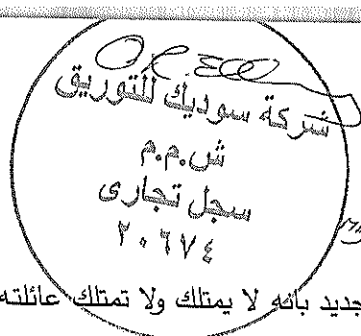 شركة سوديك للتوريق
ش.م.م
سجل تجارى
٢٠٦٧٤
جديد بانه لا يمتلك ولا تمتلك عائلته